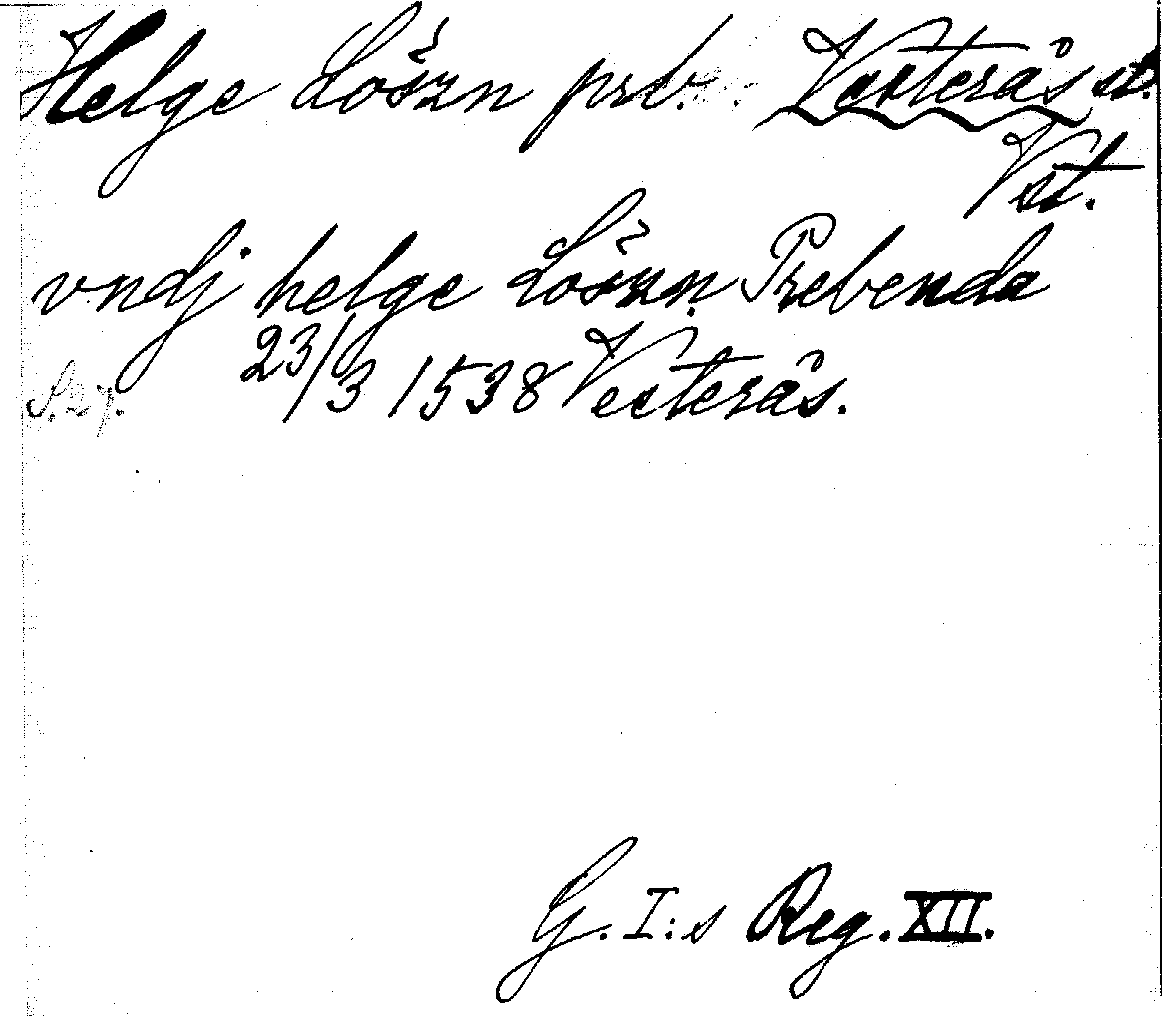 Helge Löszn prb. Vesterås st.
Vst.
vndj helge Löszn Prebenda
23/3 1538 Vesterås.
S. 27.
G. I:s Reg. XII.